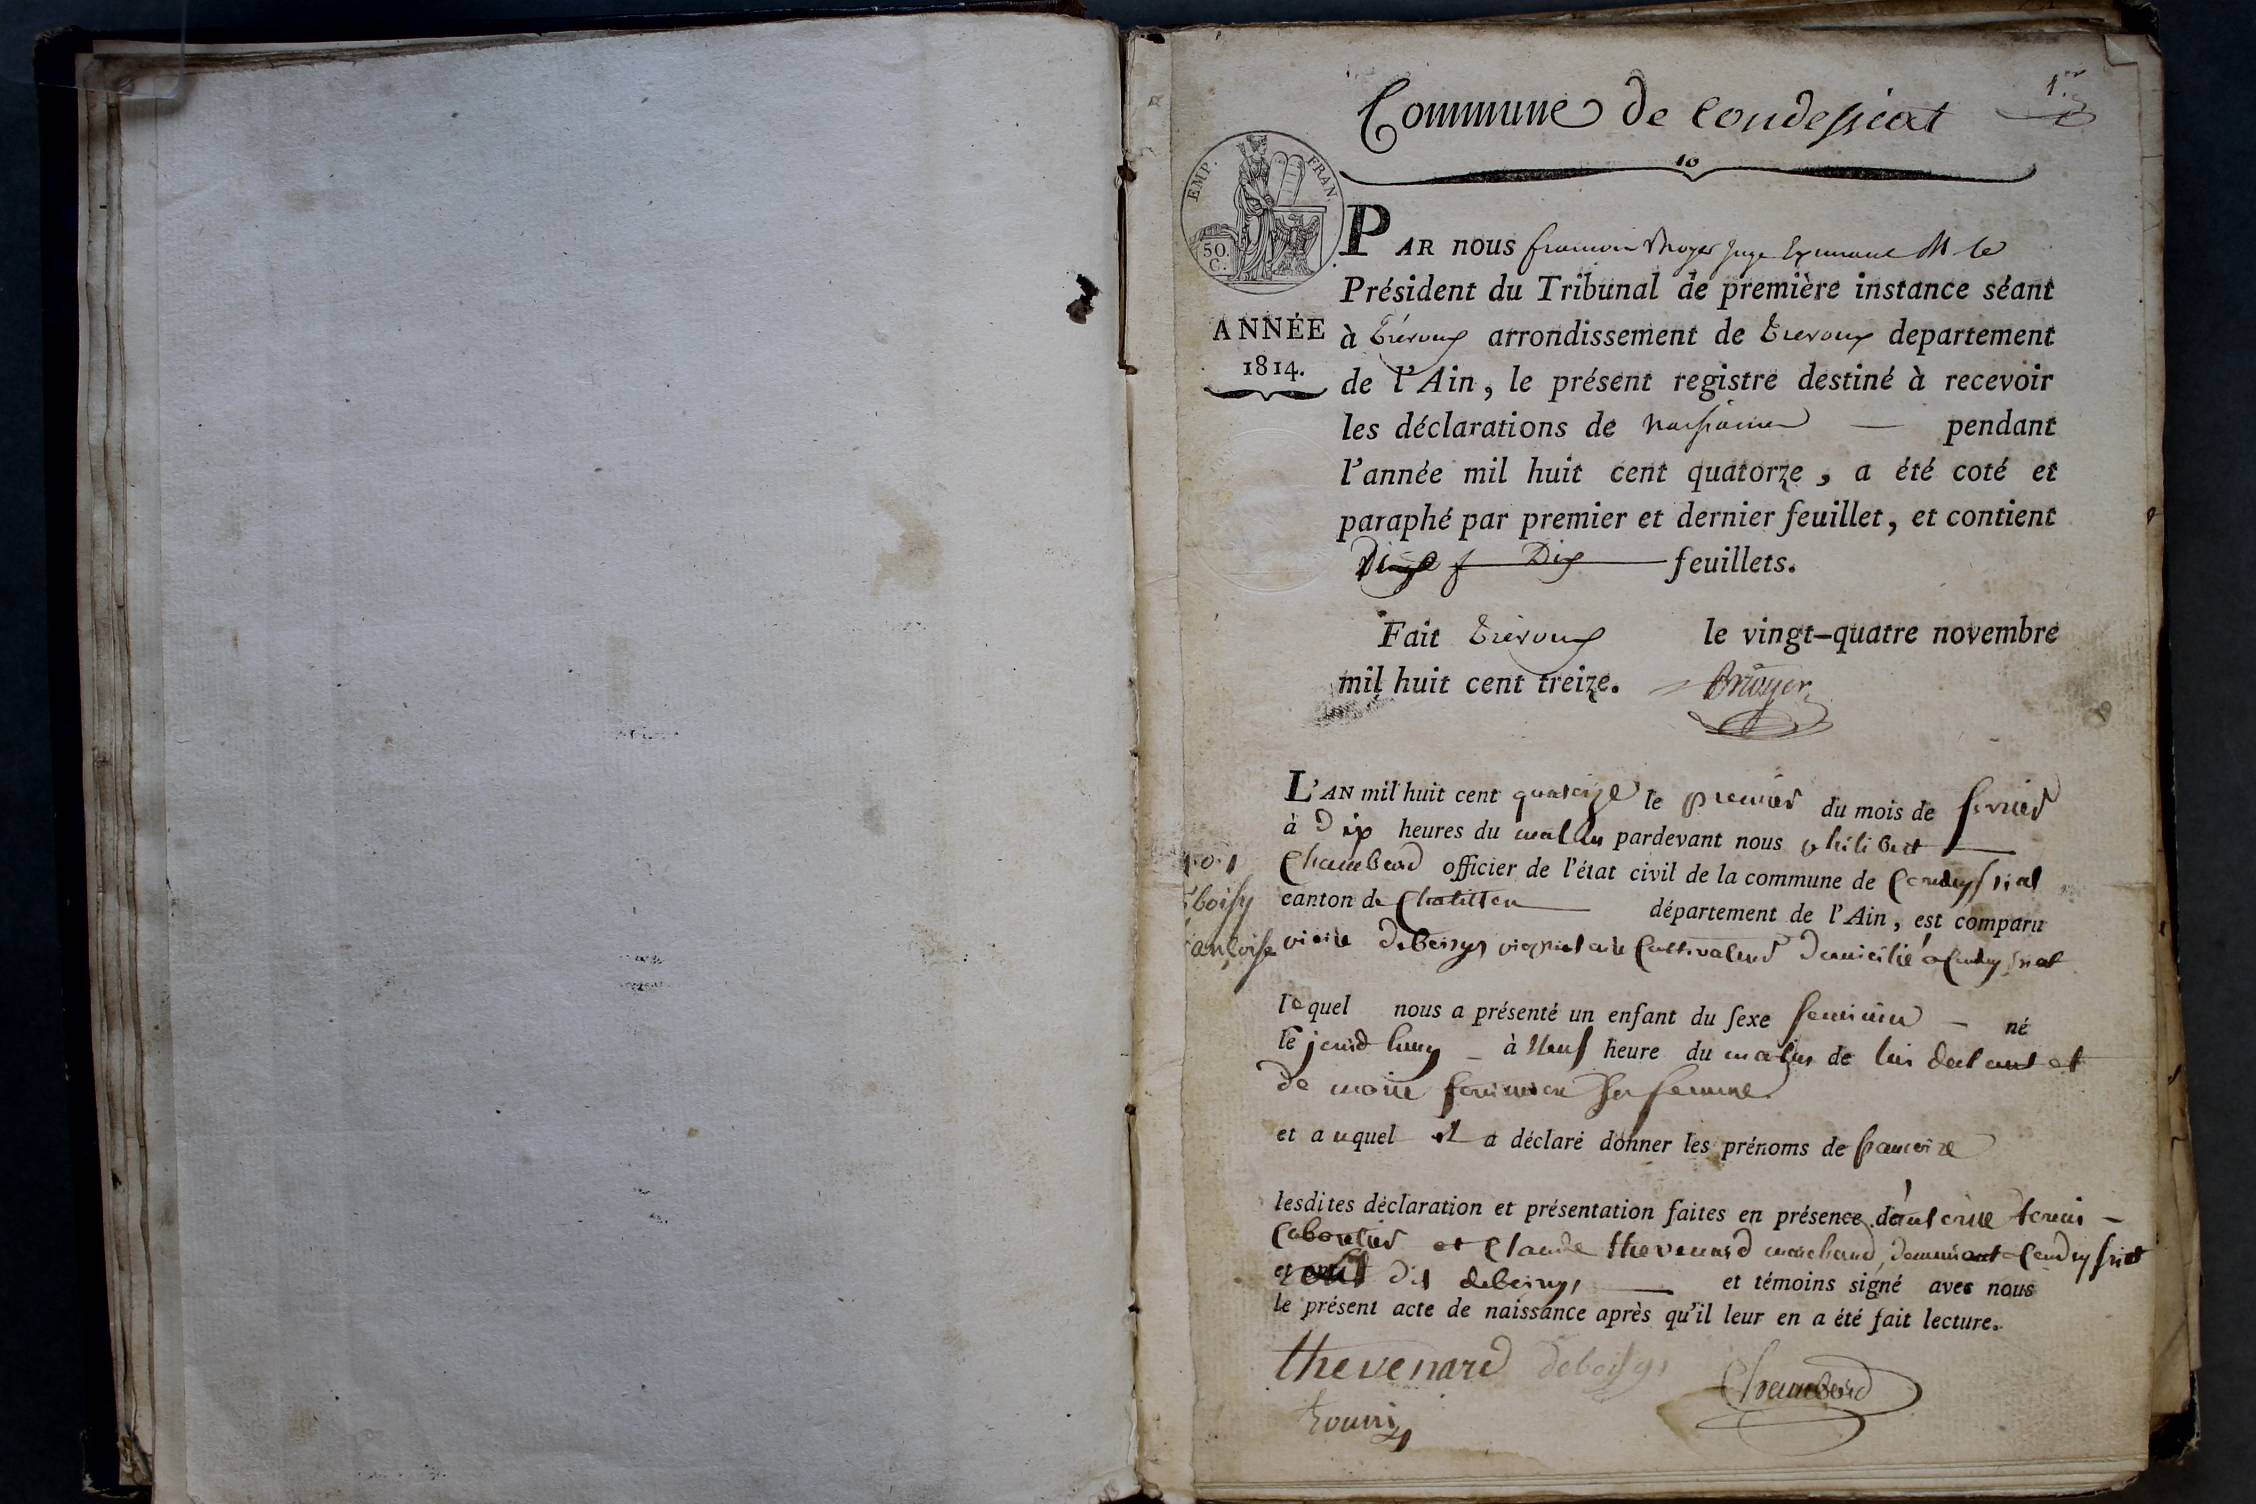 Commune de Condessiat
1.er
10
EMP. FRAN.
50. C.
PAR nous juge le
Président du Tribunal de première instance séant
ANNÉE
1814.
à Trévoux arrondissement de Trevoux departement
de l'Ain, le présent registre destiné à recevoir
les déclarations de naissance — pendant
l'année mil huit cent quatorze, a été coté et
paraphé par premier et dernier feuillet, et contient
Dix feuillets.
Fait Trévoux le vingt-quatre novembre
mil huit cent treize.
L'AN mil huit cent quatorze le premier du mois de fevrier
à Dix heures du matin pardevant nous philibert
Chambard officier de l'état civil de la commune de Condeyssiat
canton de Chatillon département de l'Ain, est comparu
deboisys cultivateur Domicilié a Condeyssiat
n.o 1
Eboisy
ançoise
lequel nous a présenté un enfant du sexe feminin — né
le à Neuf heure du matin de lui declarant et
de femme
et auquel il a déclaré donner les prénoms de francoise
lesdites déclaration et présentation faites en présence d'antoine
et Claude thevenard marchand Condeyssiat
et dit deboisys et témoins signé avec nous
le présent acte de naissance après qu'il leur en a été fait lecture.
thevenard deboisys Chambard